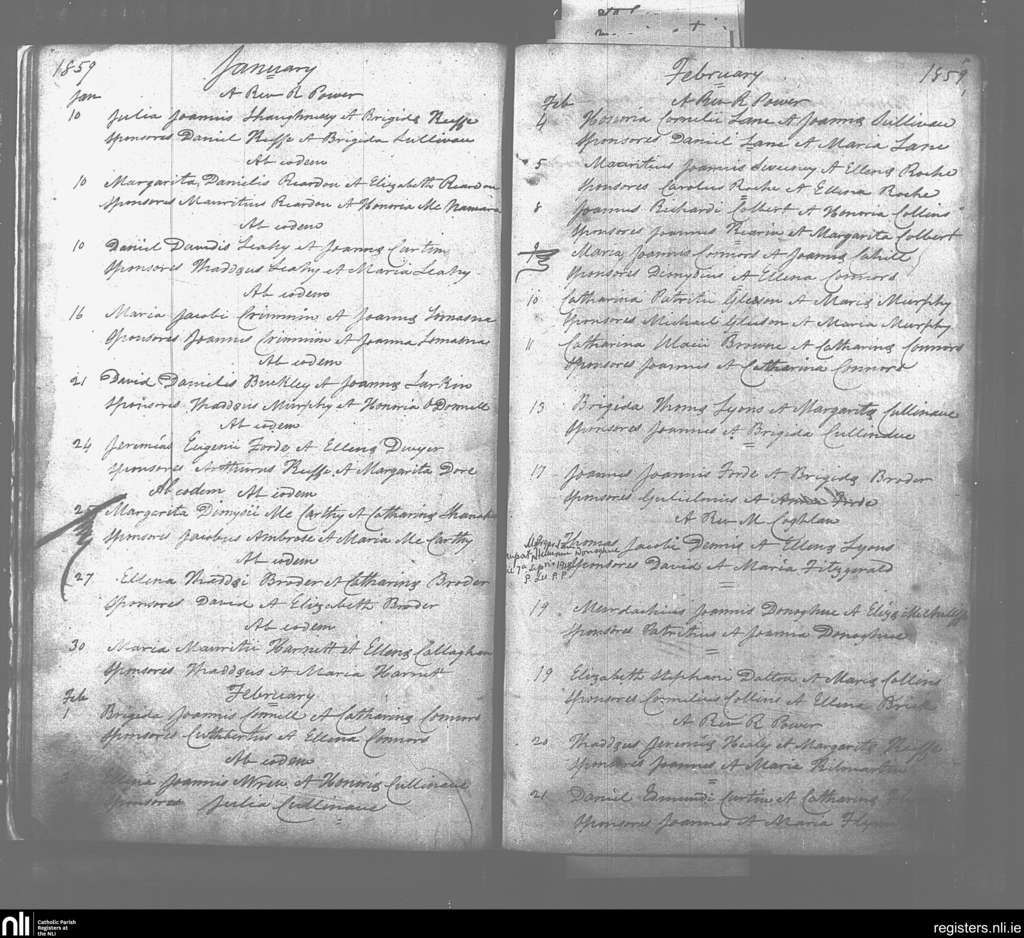 1859 January
A Rev R Power
Jan
10 Julia Joannis Shaughnessy et Brigidę Keeffe
Sponsores Daniel Keeffe et Brigida Sullivan
Ab eodem
10 Margarita Danielis Reardon et Elizabeth Reardon
Sponsores Mauritius Reardon et Honoria Mc Namara
Ab eodem
10 Daniel Davidis Leahy et Joannę Curtin
Sponsores Thaddęus Leahy et Maria Leahy
Ab eodem
16 Maria Jacobi Crimmin et Joannę Lomasna
Sponsores Joannes Crimmin et Joanna Lomasna
Ab eodem
21 David Danielis Buckley et Joannę Larkin
Sponsores Thaddęus Murphy et Honoria O'Donnell
Ab eodem
24 Jeremias Eugenii Forde et Ellenę Dwyer
Sponsores Arthurus Keeffe et Margarita Dore
Ab eodem Ab eodem
Margarita Dionysii Mc Carthy et Catharinę
Sponsores Jacobus Ambrose et Maria Mc Carthy
Ab eodem
27 Ellena Thaddęi Broder et Catharinę Broder
Sponsores David et Elizabeth Broder
Ab eodem
30 Maria Mauritii Harnett et Ellenę Callaghan
Sponsores Thaddęus et Maria Harnett
February
Feb
1 Brigida Joannis Connell et Catharinę Connors
Sponsores Cuthbertus et Ellena Connors
Ab eodem
Joannis et Honorię Cullinane
Sponsores Julia Cullinane
February 1859
A Rev R Power
Feb
4 Honoria Cornelii Lane et Joannę Sullivan
Sponsores Daniel Lane et Maria Lane
5 Mauritius Joannis Sweeney et Ellenę Roche
Sponsores Carolus Roche et Ellena Roche
8 Joannes Richardi Colbert et Honoria Collins
Sponsores Joannes et Margarita Colbert
9 Maria Joannis Connors et Joannę Cahill
Sponsores Dionysius et Ellena Connors
10 Catharina Patritii Gleeson et Marię Murphy
Sponsores Michael Gleeson et Maria Murphy
11 Catharina Browne et Catharinę Connors
Sponsores Joannes et Catharina Connors
13 Brigida Thomę Lyons et Margaritę Cullinane
Sponsores Joannes et Brigida Cullinane
17 Joannes Joannis Forde et Brigidę Broder
Sponsores Gulielmus et Forde
A Rev M Coghlan
Thomas Jacobi Dennis et Ellenę Lyons
Sponsores David et Maria Fitzgerald
19 Joannis Donoghue et Elizę
Sponsores Patritius et Joanna Donoghue
19 Elizabeth Stephani Dalton et Marię Collins
Sponsores Cornelius Collins et Ellena Brick
A Rev R Power
20 Thaddęus Jeremię Healy et Margaritę Keeffe
Sponsores Joannes et Maria Kilmartin
21 Daniel Edmundi Curtin et Catharinę
Sponsores Joannes et Maria Flynn
nli Catholic Parish Registers at the NLI
registers.nli.ie